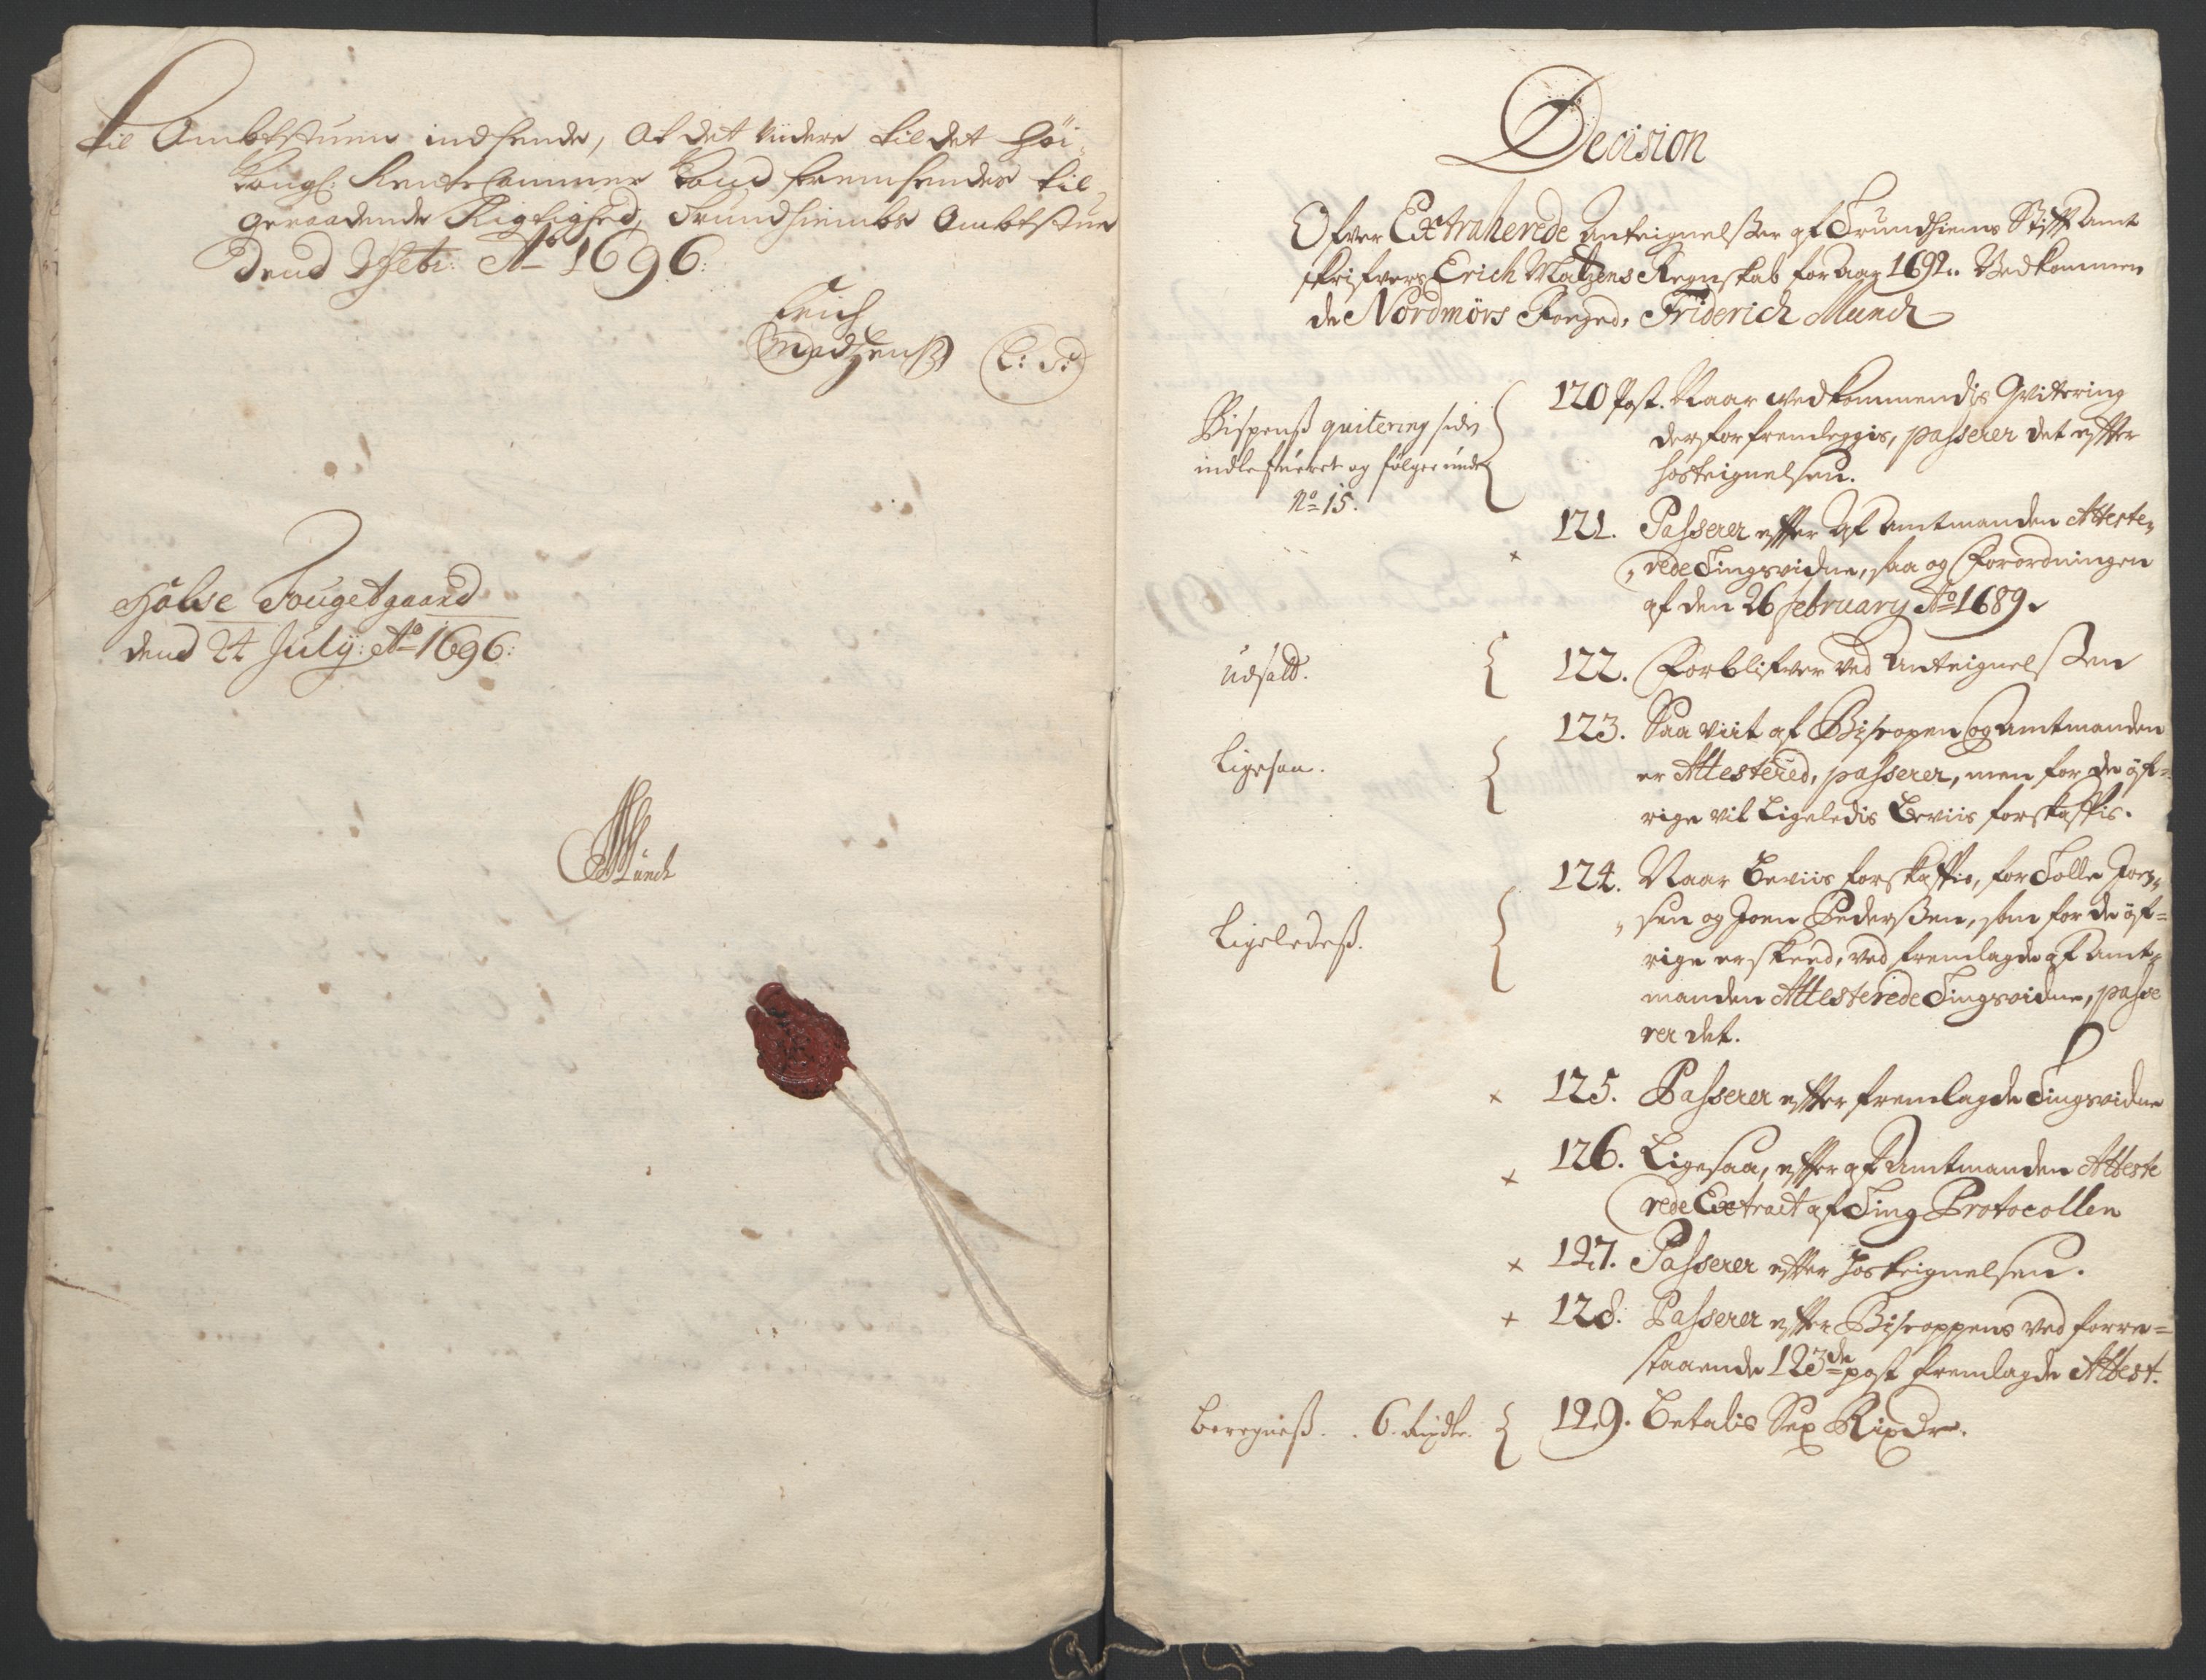 til Ambtstuen indsende, At det viidere til det høi¬
Kongl: Rente Cammer kand fremsendes til¬
geraadende Rigtighed, Trundhiembs Ambtstue
dend 3 Feb: Ao 1696:
Erich
Madtzenß L: S:
Halse Fougetgaard
dend 24 July: Ao 1696:
Munch
Decision
Ofver Extraherede Anteignelßer af Trundhiems Stift Amt
skrifvers Erich Matzens Regnskab for aar 1692. Vedkommen
de Nordmørs Foeged, Friderich Munch
Bispenß quitering sides
indlefueret og følger under
No 15.
120 Post. Naar vedkommendis Qvitering
derfor fremleggis, passerer det effter
hosteignelsen.
× 121. Passerer effter af Amtmanden Atteste„
„rede Tingsvidne, saa og Forordningen
af den 26 february Ao 1689.
udsatt. 122. Forblifver ved Anteignelßen
Ligesaa. 123. Saa viit af Biscopen og Amtmanden
er Attestered, passerer, men for de øf=
rige vil Ligeledis Beviis forskaffis.
Ligeledeß. 124. Naar Beviis forskaffis, for Tolle Joen„
„sen og Joen Pederßen, som for de øf=
rige er skeed, ved fremlagde af Amt„
manden Attesterede Tingsvidne, passe
rer det.
× 125. Passerer effter fremlagde Tingsvidne
× 126. Ligesaa, effter af Amtmanden Atteste
rede Extract af Ting Protocollen
× 127. Passerer effter Hosteignelsen.
+ 128. Passerer effter Biscoppens ved forre=
staaende 123de post fremlagde Attest.
beregneß. . 6. rixdlr. 129. Betalis Sex Rixdr.